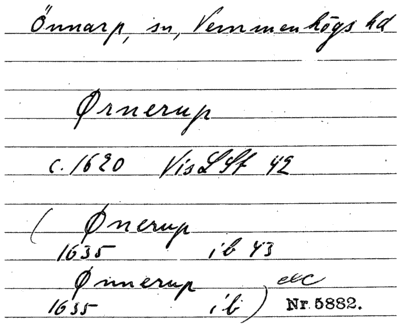 Önnarp, sn, Vemmenhögs hd
Ørnerup
c. 1620 Vis LSt 42
( Ønerup
1635 ib 43
Ønnerup etc
1655 ib ) Nr. 5882.